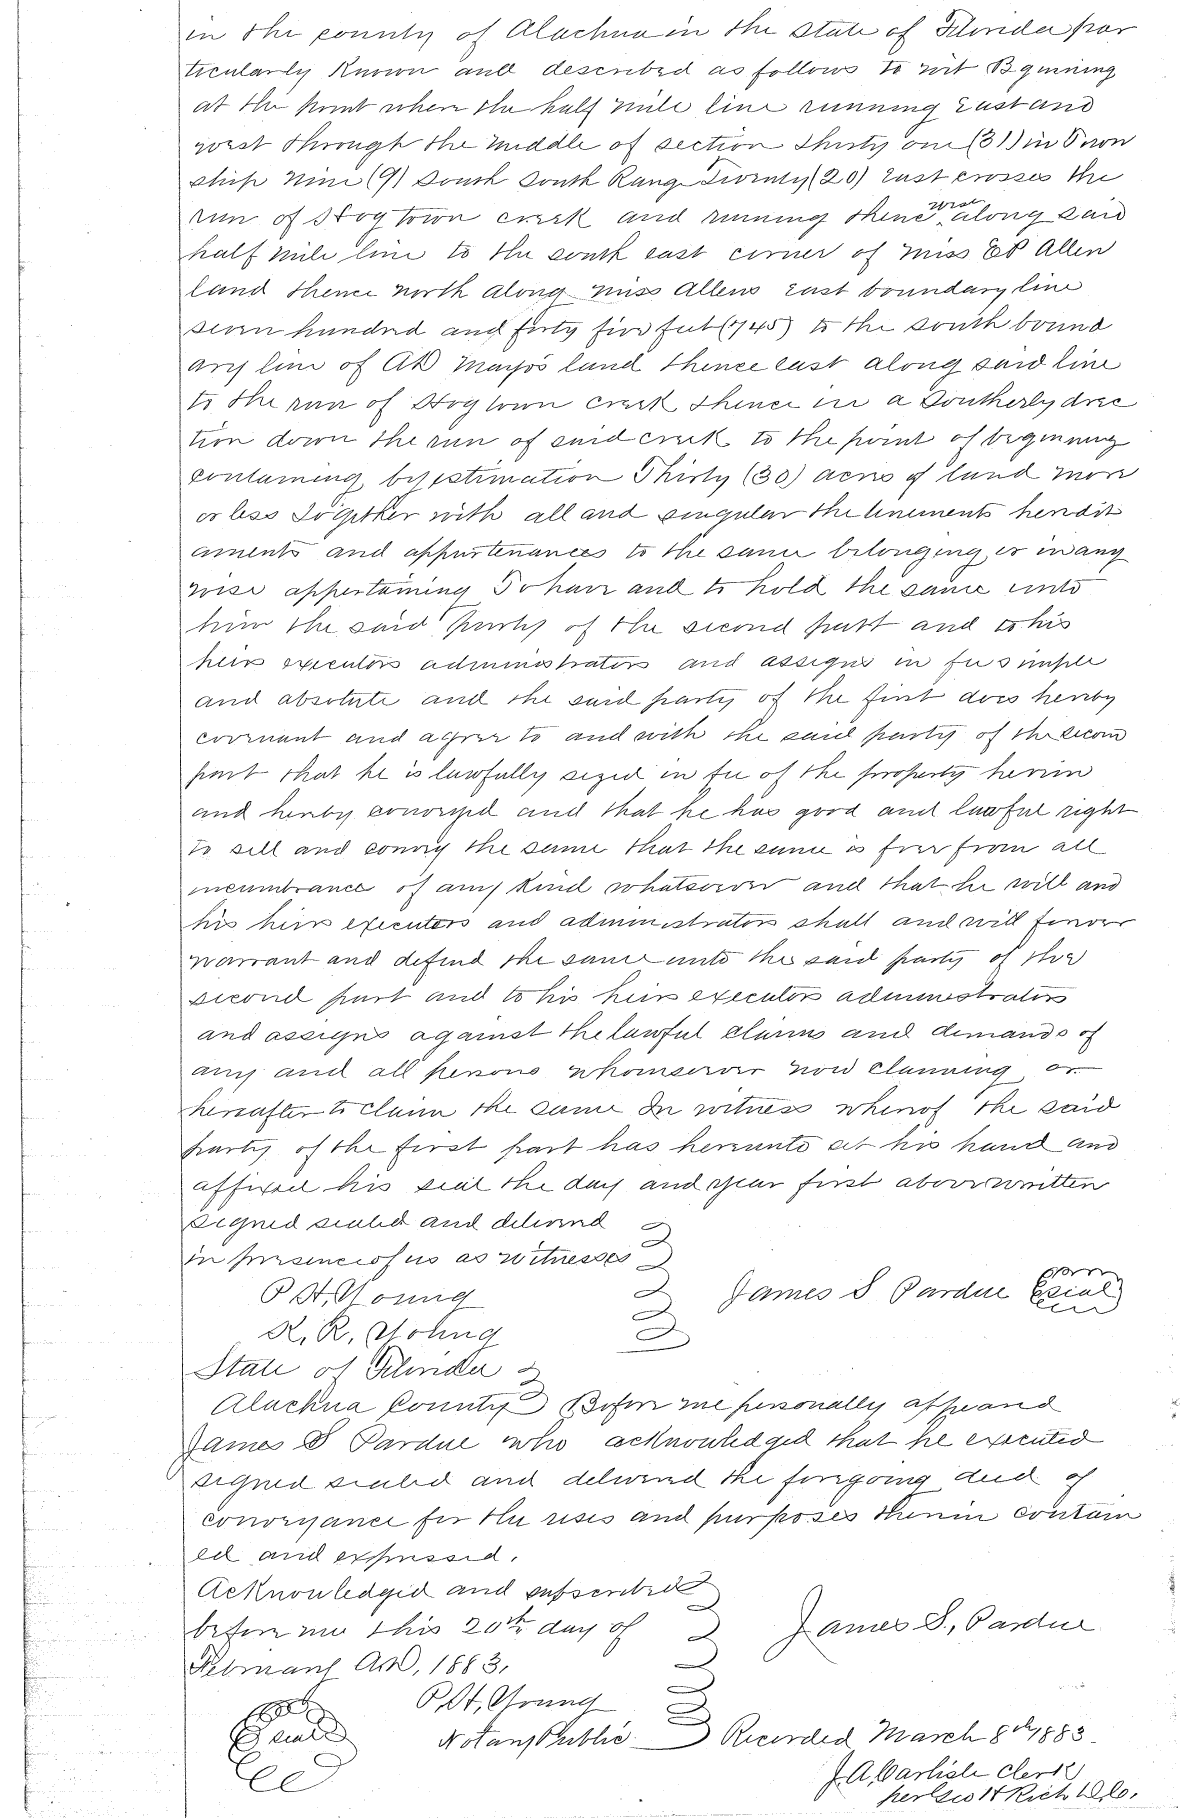 in the county of Alachua in the State of Florida par
ticularly Known and described as follows to wit Bginning
at the point where the half mile line running East and
west through the middle of section Thirty one (31) in Town
ship Nine (9) South South Range Twenty (20) East crosses the
run of Hogtown creek and running thence west along said
half mile line to the south east corner of Miss EP Allen
land thence north along miss Allens east boundary line
seven hundred and forty five feet (745) to the south bound
ary line of AD Mayo's land thence east along said line
to the run of Hogtown creek thence in a Southerly direc
tion down the run of said creek to the point of beginning
containing by estimation Thirty (30) acres of land more
or less Together with all and singular the tenements heredit
aments and appurtenances to the same belonging or in any
wise appertaining To have and to hold the same unto
him the said party of the second part and to his
heirs executors administrators and assigns in fee simple
and absolute and the said party of the first does hereby
covenant and agree to and with the said party of the secon
part that he is lawfully sezed in fee of the property herein
and hereby conveyed and that he has good and lawful right
to sell and convey the same that the same is free from all
incumbrance of any kind whatsoever and that he will and
his heirs executors and administrators shall and will forever
warrant and defend the same unto the said party of the
second part and to his heirs executors administrators
and assigns against the lawful claims and demands of
any and all persons whomsoever now claiming or
hereafter to claim the same In witness whereof the said
party of the first part has hereunto set his hand and
affixed his seal the day and year first above written
Signed sealed and delivered
in presence of us as witnesses
P H Young James S Pardue Seal
R. R. Young
State of Florida
Alachua County Before me personally appeared
James S Pardue who acknowledged that he executed
signed sealed and delivered the foregoing deed of
conveyance for the uses and purposes therein contain
ed and expressed.
Acknowledged and subscribed
before me this 20th day of James S, Pardue
February AD, 1883.
P, H, Young
Seal Notary Public Recorded March 8th 1883
J. A, Carlisle Clerk
per Geo H Rich D, C.